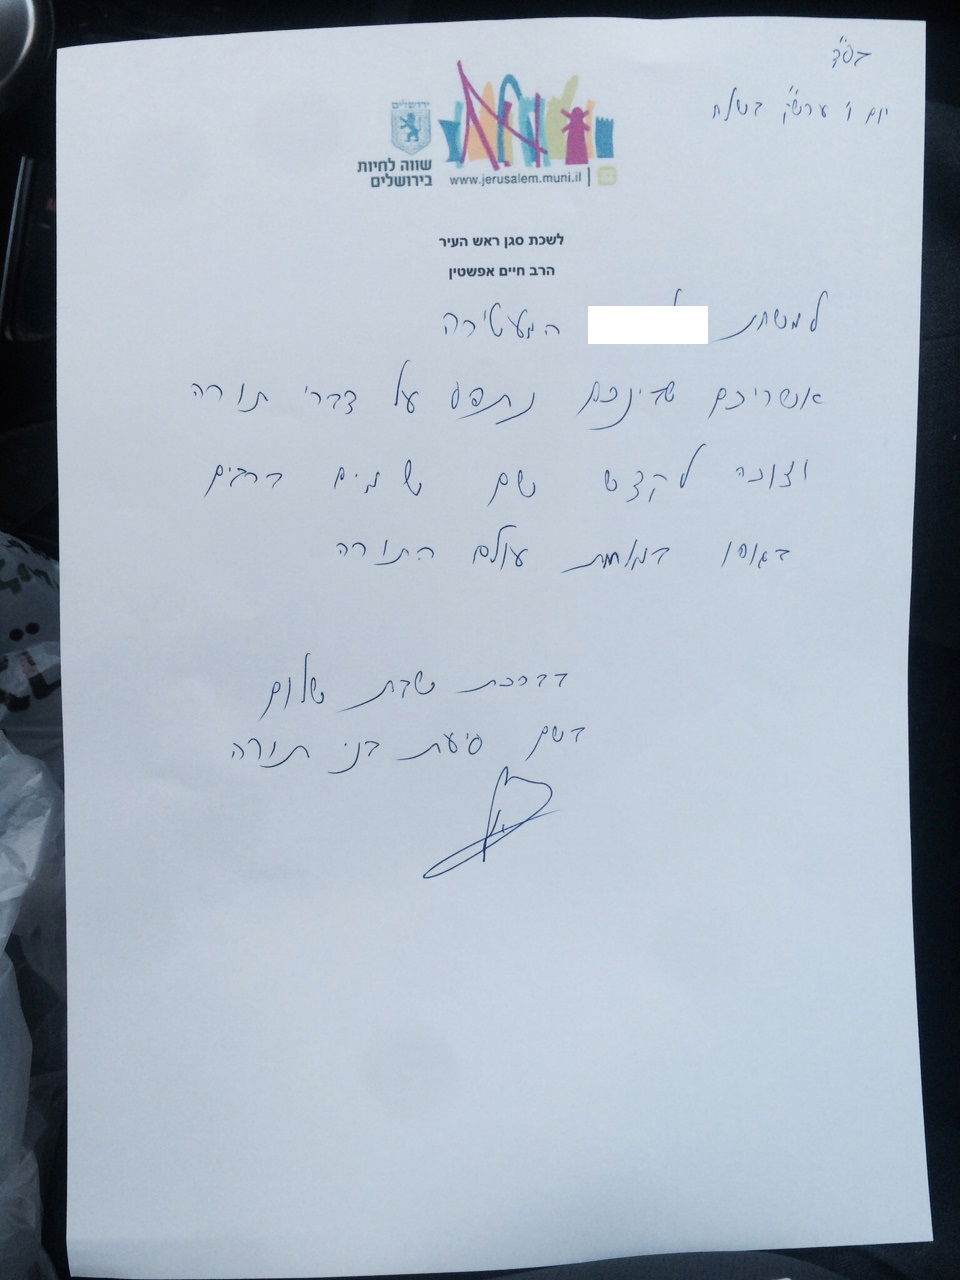 בס"ד
יום ו' ערש"ק בשלח
ירושלים
שווה לחיות
בירושלים
www.jerusalem.muni.il
לשכת סגן ראש העיר
הרב חיים אפשטין
למשפחת המעטירה
אשריכם שבינכם נתפס על דברי תורה
וזוכה לקדש שם שמים ברבים
בגופו במלחמת עולם התורה
בברכת שבת שלום
בשם סיעת בני תורה